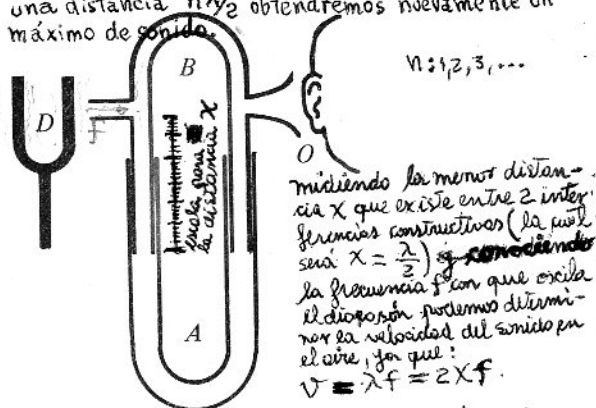 una distancia nλ/2 obtendremos nuevamente un
máximo de sonido.
n:1,2,3,...
B
D
f
escala para
la distancia X
O
A
midiendo la menor distan-
cia X que existe entre 2 inter-
ferencias constructivas (la cual
será X = λ/2) y conociendo
la frecuencia f con que oscila
el diapasón podemos determi-
nar la velocidad del sonido en
el aire, ya que:
V = λf = 2Xf.